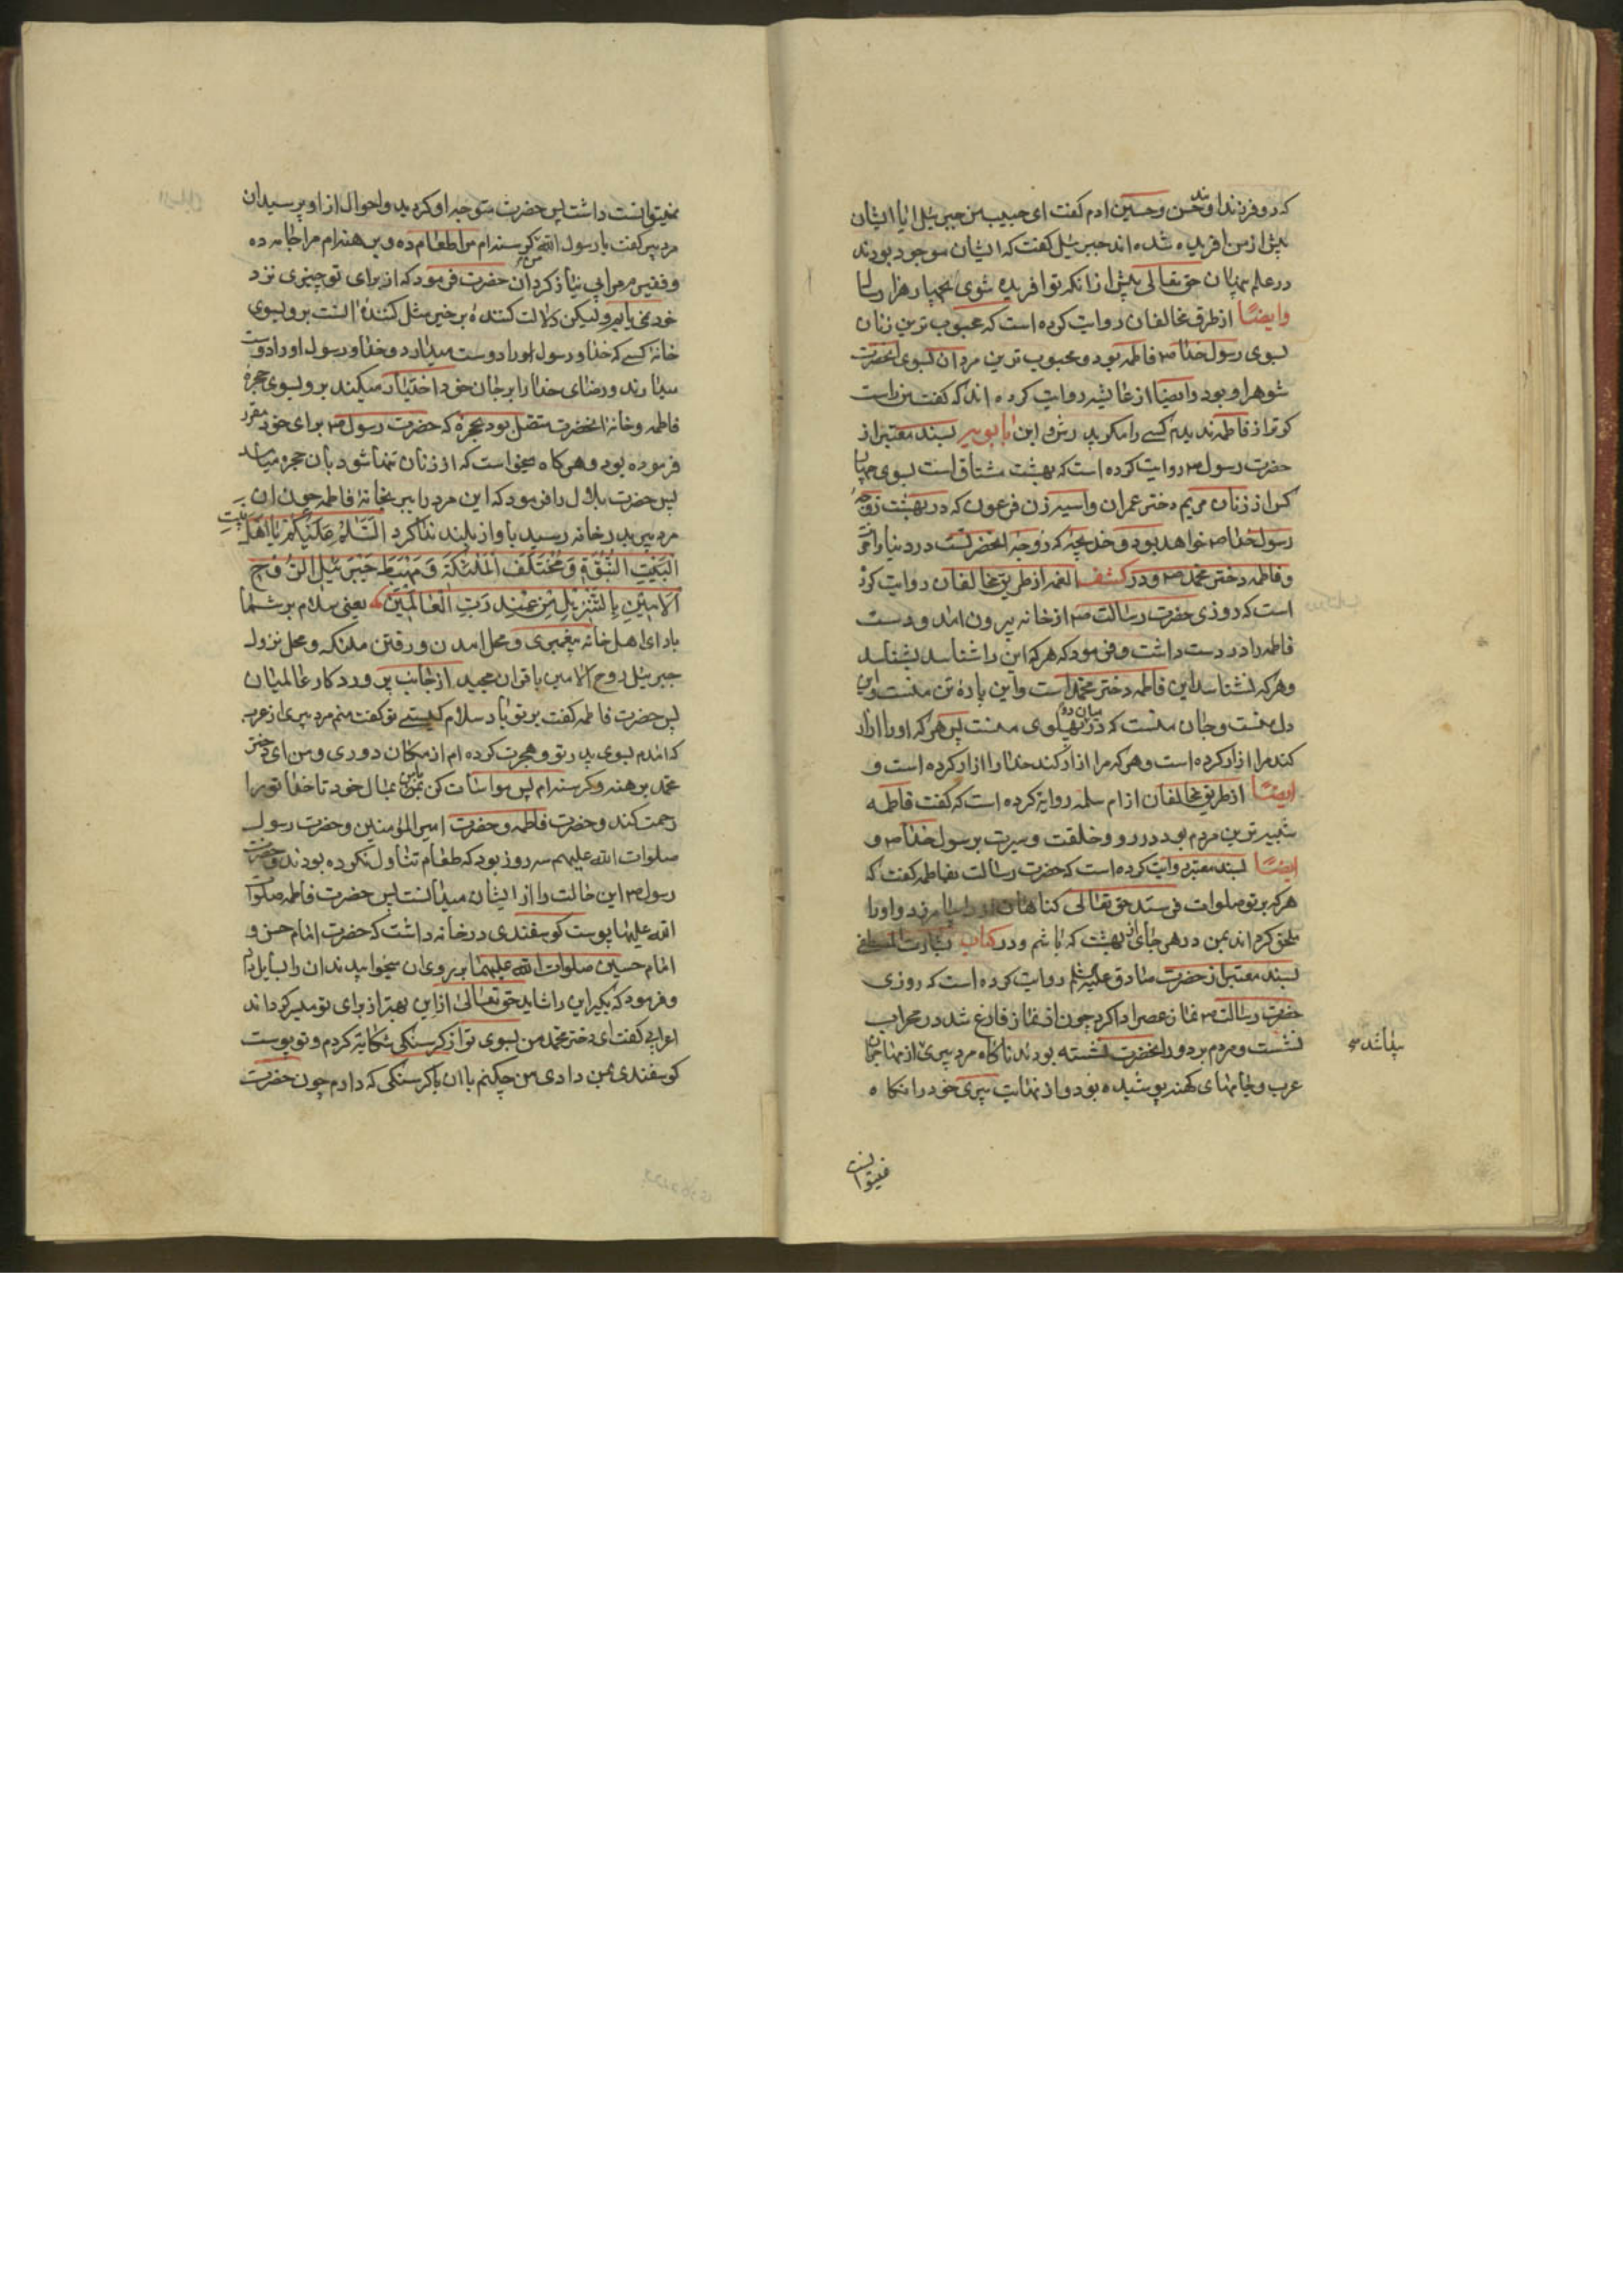 که دو فرزند اوند حسن و حسین ادم کفت ای حبیب من جبرئیل ایا ایشان
پیش از من افریده شده اند جبرئیل کفت که ایشان موجود بودند
در علم پنهان حق تعالی پیش از انکه تو افریده شوی بچهار هزار سال
وایضًا از طرق مخالفان روایت کرده است که محبوب ترین زنان
بسوی رسول خدا ص فاطمه بود و محبوب ترین مردان بسوی انحضرت
شوهر او بود وایضا از عایشه روایت کرده اند که کفت من راست
کوتر از فاطمه ندیدم کسی را مکر پدرش و ابن بابویه بسند معتبر از
حضرت رسول ص روایت کرده است که بهشت مشتاق است بسوی چهار
کس از زنان مریم دختر عمران و اسیه زن فرعون که در بهشت زوجه
رسول خدا ص خواهد بود و خدیجه که زوجه انحضرتست در دنیا و اخرت
و فاطمه دختر محمد ص و در کشف الغمه از طریق مخالفان روایت کرده
است که روزی حضرت رسالت ص از خانه بیرون امد و دست
فاطمه را در دست داشت و فرمود که هرکه این را شناسد بشناسد
و هرکه نشناسد این فاطمه دختر محمد است و این پاره تن منست و این
دل منست و جان منست که در میان دو پهلوی منست پس هرکه او را ازار
کند مرا ازار کرده است و هرکه مرا ازار کند خدا را ازار کرده است و
ایضًا از طریق مخالفان از ام سلمه روایة کرده است که کفت فاطمه
شبیه ترین مردم بود در رو و خلقت و سیرت برسول خدا ص و
ایضًا بسند معتبر روایت کرده است که حضرت رسالت بفاطمه کفت که
هرکه بر تو صلوات فرستد حق تعالی کناهان او را بیامرزد و او را
ملحق کرداند بمن در هر جای از بهشت که باشم و در کتاب بشارت المصطفی
بسند معتبر از حضرت صادق علیه السلم روایت کرده است که روزی
حضرت رسالت ص نماز عصر ادا کرد چون از نماز فارغ شد در محراب
نشست و مردم بر دور انحضرت نشسته بودند ناکاه مرد پیری از مهاجران
عرب و جامهای کهنه پوشیده بود و از نهایت پیری خود را نکاه
نمیتوانست
نمیتوانست داشت پس حضرت متوجه او کردید و احوال از او پرسید ان
مرد پیر کفت یا رسول الله من کرسنه ام مرا طعام ده و برهنه ام مرا جامه ده
و فقیرم مرا بی نیاز کردان حضرت فرمود که از برای تو چیزی نزد
خود نمی یابم ولیکن دلالت کنندهٔ بر خیر مثل کنندهٔ انست برو بسوی
خانه کسی که خدا و رسول او را دوست میدارد و خدا و رسول او را دوست
میدارند و رضای خدا را بر جان خود اختیار میکند برو بسوی حجره
فاطمه و خانه انحضرت متصل بود بحجرهٔ که حضرت رسول ص برای خود مقرر
فرموده بود و هرکاه میخواست که از زنان تنها شود بان حجره میامد
پس حضرت بلال را فرمود که این مرد را ببر بخانهٔ فاطمه چون ان
مرد پیر بدر خانه رسید باواز بلند ندا کرد اَلسَّلامُ عَلَیْکُمْ یا اَهْلَ بَیْتِ
البَیْتِ النُّبُوَّةِ وَ مُخْتَلَفَ المَلئِکَةِ وَ مَهْبَطَ جَبْرَئیلِ الرُّوحِ
الاَمینِ بِالتَّنْزیلِ مِنْ عِنْدِ رَبِّ الْعالَمینَ یعنی سلام بر شما
باد ای اهل خانه پیغمبری و محل امدن و رفتن ملئکه و محل نزول
جبرئیل روح الامین باقران مجید از جانب پروردکار عالمیان
پس حضرت فاطمه کفت بر تو باد سلام کیستی تو کفت منم مرد پیری از عرب
که امدم بسوی پدر تو و هجرت کرده ام از مکان دوری و من ای دختر
محمد برهنه و کرسنه ام پس مواسات کن با من بمال خود تا خدا تو را
رحمت کند و حضرت فاطمه و حضرت امیر المؤمنین و حضرت رسول
صلوات الله علیهم سه روز بود که طعام تناول نکرده بودند و حضرت
رسول ص این حالت را از ایشان میدانست پس حضرت فاطمه صلوات
الله علیها پوست کوسفندی در خانه داشت که حضرت امام حسن و
امام حسین صلوات الله علیهما بر روی ان میخوابیدند ان را بسایل داد
و فرمود که بکیر این را شاید حق تعالی از این بهتر از برای تو میسر کرداند
اعرابی کفت ای دختر محمد من بسوی تو از کرسنکی شکایة کردم و تو پوست
کوسفندی بمن دادی من چکنم باان باکرسنکی که دارم چون حضرت